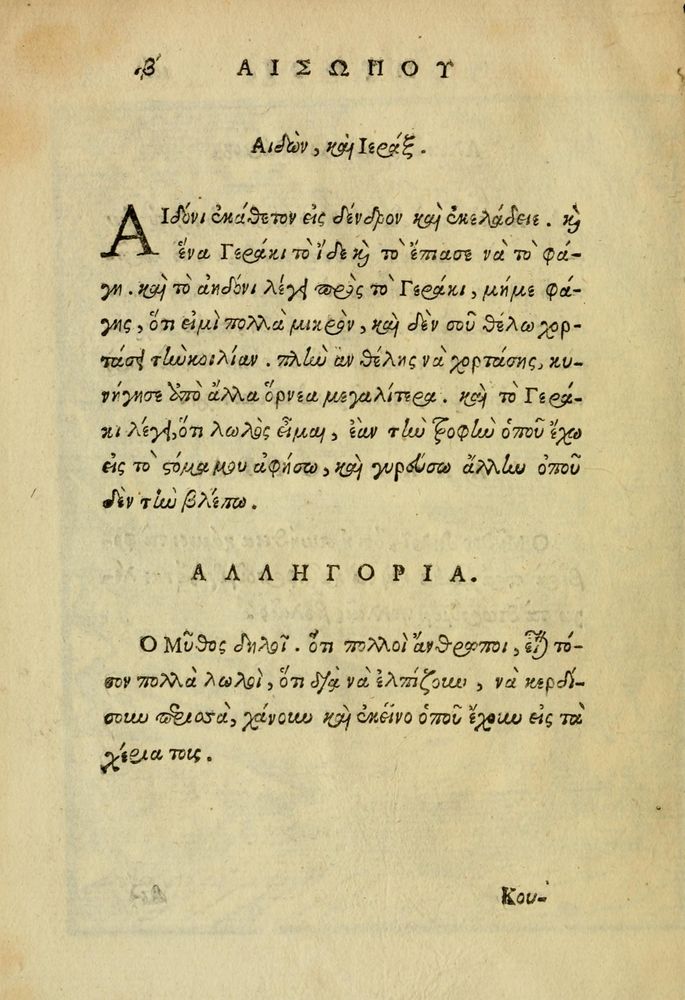 ιβ ΑΙΣΩΠΟΥ
Αιδὼν, καὶ Ιεράξ.
ΑΙδόνι ἐκάθετον εἰς δένδρον καὶ ἐκελάδειε. κὶ
ἕνα Γεράκι τὸ ἴδε κὶ τὸ ἔπιασε νὰ τὸ φά-
γη. καὶ τὸ ἀηδόνι λέγει πρὸς τὸ Γεράκι, μήμε φά-
γης, ὅτι εἰμὶ πολλὰ μικρὸν, καὶ δὲν σοῦ θέλω χορ-
τάσει τὴν κοιλίαν. πλὴν ἂν θέλης νὰ χορτάσης, κυ-
νήγησε ἀπὸ ἄλλα ὄρνεα μεγαλίτερα. καὶ τὸ Γερά-
κι λέγει, ὅτι λωλὸς εἶμαι, ἐὰν τὴν τροφὴν ὁποῦ ἔχω
εἰς τὸ στόμα μου ἀφήσω, καὶ γυρεύσω ἄλλην ὁποῦ
δὲν τὴν βλέπω.
ΑΛΛΗΓΟΡΙΑ.
Ο Μῦθος δηλοῖ. ὅτι πολλοὶ ἄνθρωποι, εἶναι τό-
σον πολλὰ λωλοὶ, ὅτι διὰ νὰ ἐλπίζουν, νὰ κερδί-
σουν περισσὰ, χάνουν καὶ ἐκεῖνο ὁποῦ ἔχουν εἰς τὰ
χέρια τοις.
Κου-